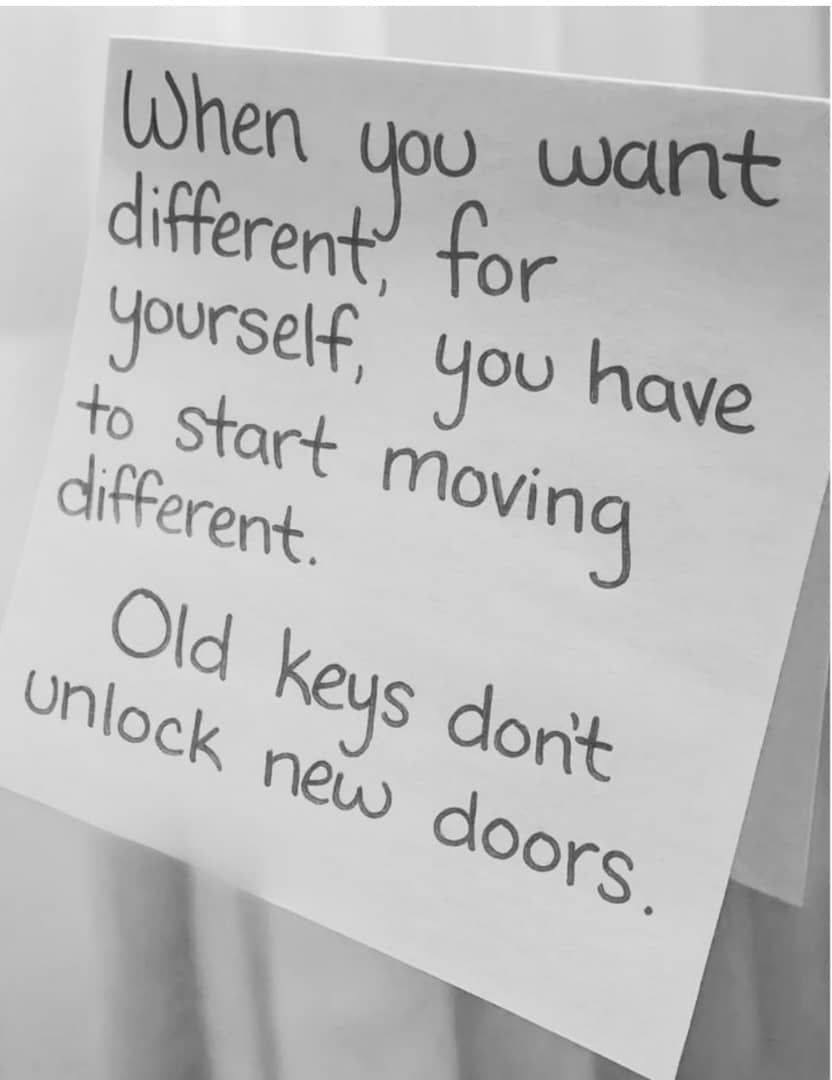 When you want
different, for
yourself, you have
to start moving
different.
Old keys don't
unlock new doors.